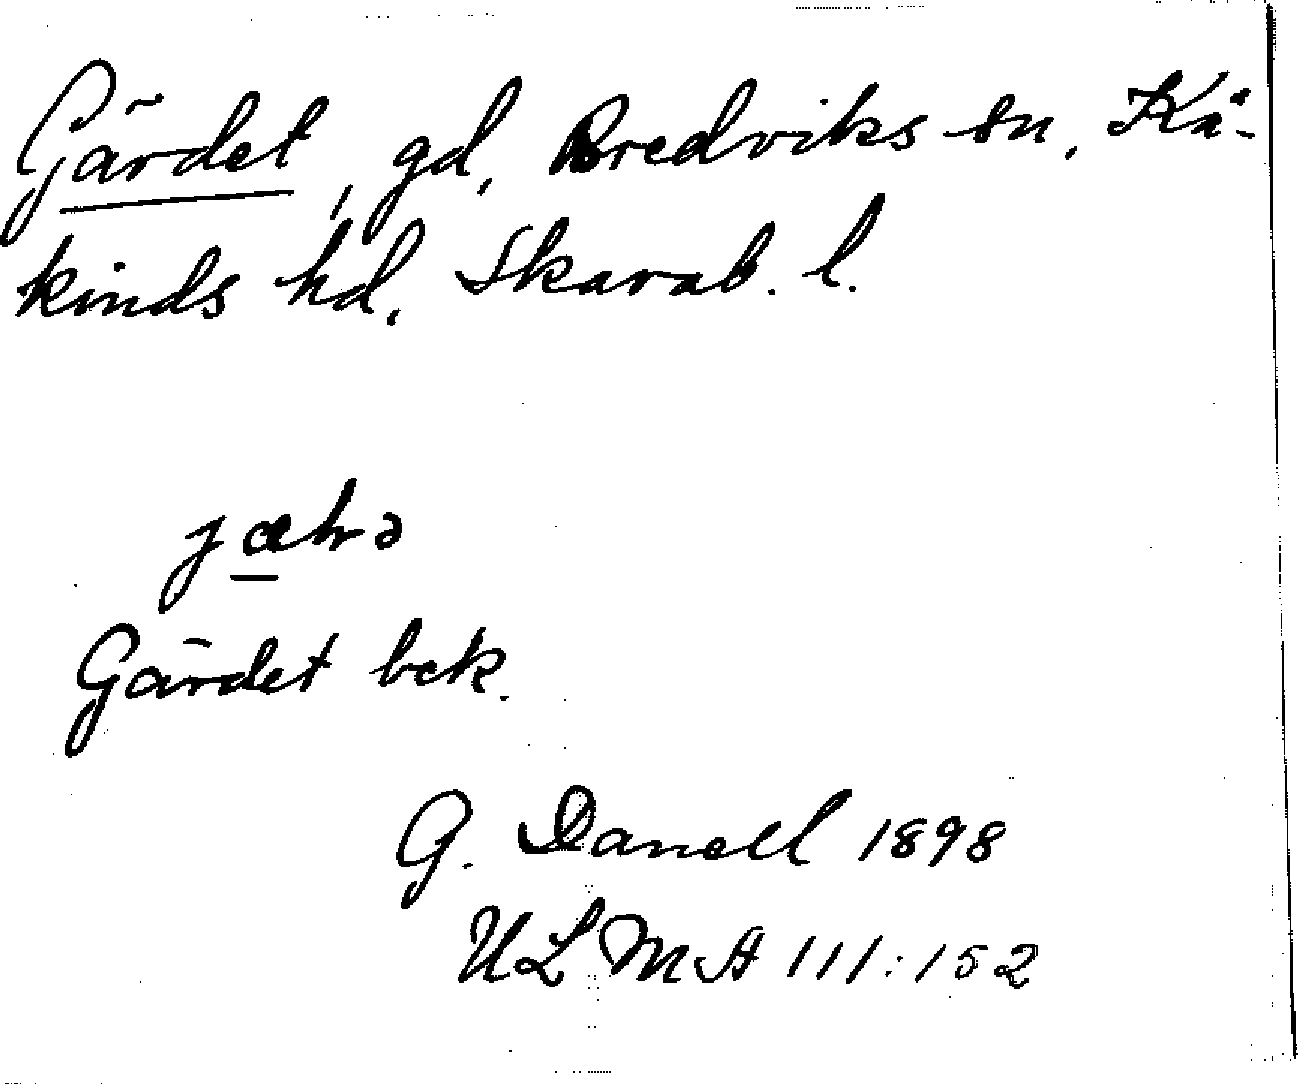 Gärdet, gd, Bredviks sn, Kå-
kinds hd, Skarab. l.
Gärdet bek.
G. Danell 1898
ULMA 111:152